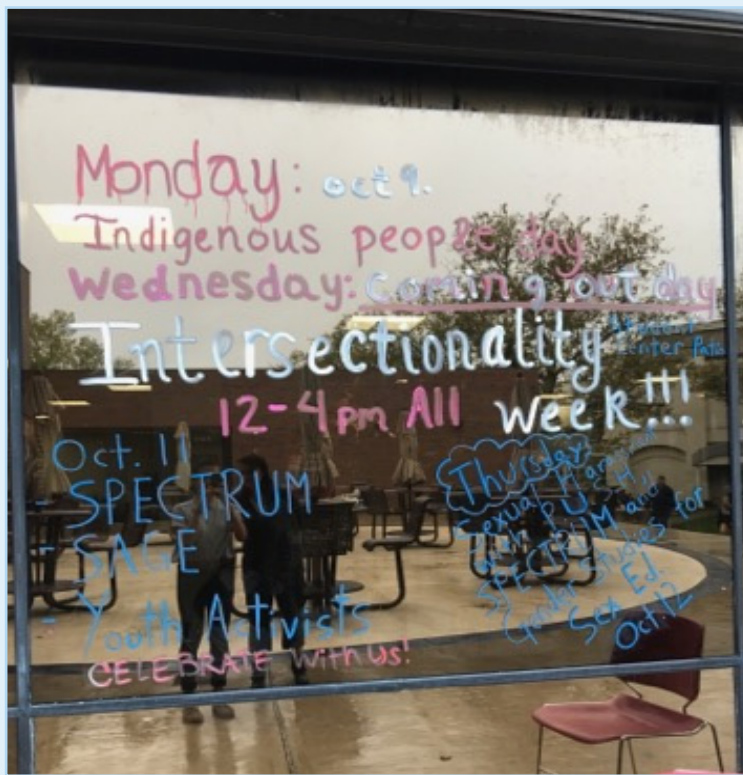 Monday: oct 9.
Indigenous people day
Wednesday: coming out day
Intersectionality
Student
Center Patio
12-4pm All week!!!
Oct. 11
- SPECTRUM
- SAGE
- Youth Activists
CELEBRATE with us!
Thursday:
Sexual
with PUSH,
SPECTRUM and
Gender Studies for
Sex Ed.
Oct. 12